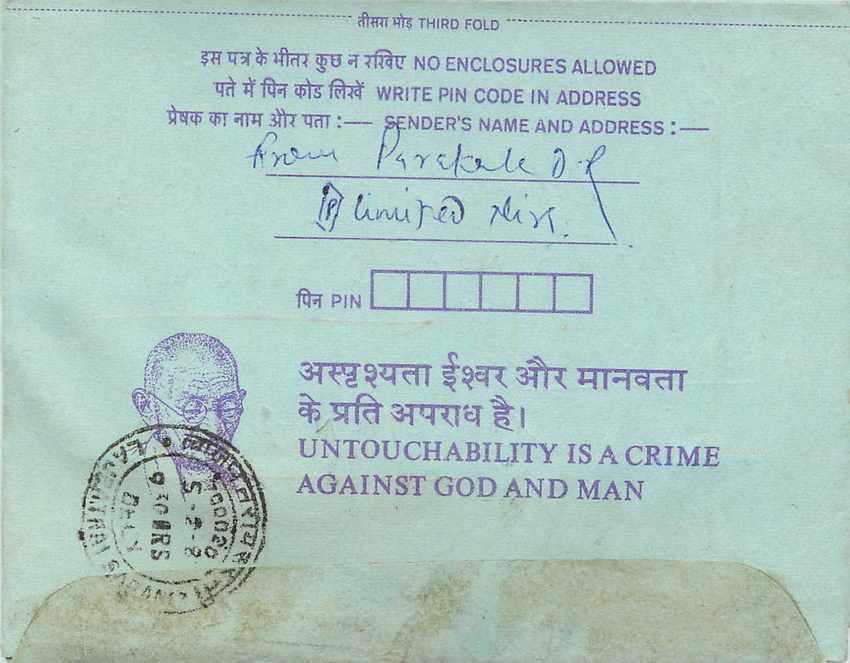 तीसरा मोड़ THIRD FOLD
इस पत्र के भीतर कुछ न रखिए NO ENCLOSURES ALLOWED
पते में पिन कोड लिखें WRITE PIN CODE IN ADDRESS
प्रेषक का नाम और पता :— SENDER'S NAME AND ADDRESS :—
From
Limited
पिन PIN
अस्पृश्यता ईश्वर और मानवता
के प्रति अपराध है।
UNTOUCHABILITY IS A CRIME
AGAINST GOD AND MAN
930HRS